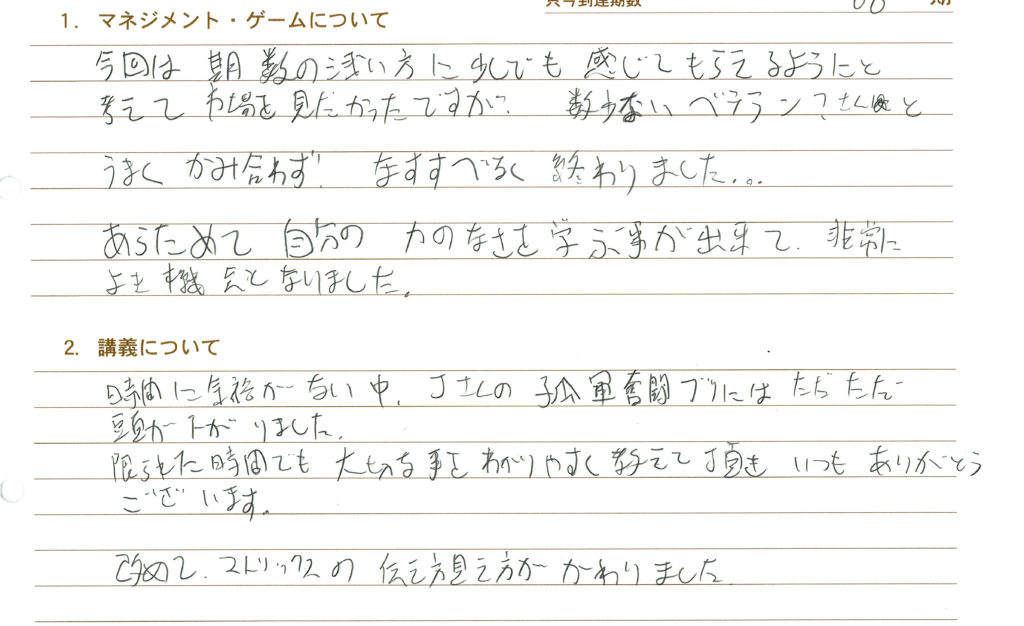 只今到達期数 期
1. マネジメント・ゲームについて
今回は 期数の浅い方に少しでも 感じてもらえるようにと
考えて 市場を見だかったですが、 数少ない ベテラン さん と
うまく かみ合わず! なすすべなく 終わりました...
あらためて 自分の 力のなさを 学ぶ事が出来て、非常に
よき機会となりました。
2. 講義について
時間に余裕がない中、Jさんの 孤軍奮闘ブリには ただただ
頭が下がりました。
限られた時間でも 大切な事を わかりやすく教えて頂き いつも ありがとう
ございます。
改めて、ストリックスの 伝え方見え方が かわりました。